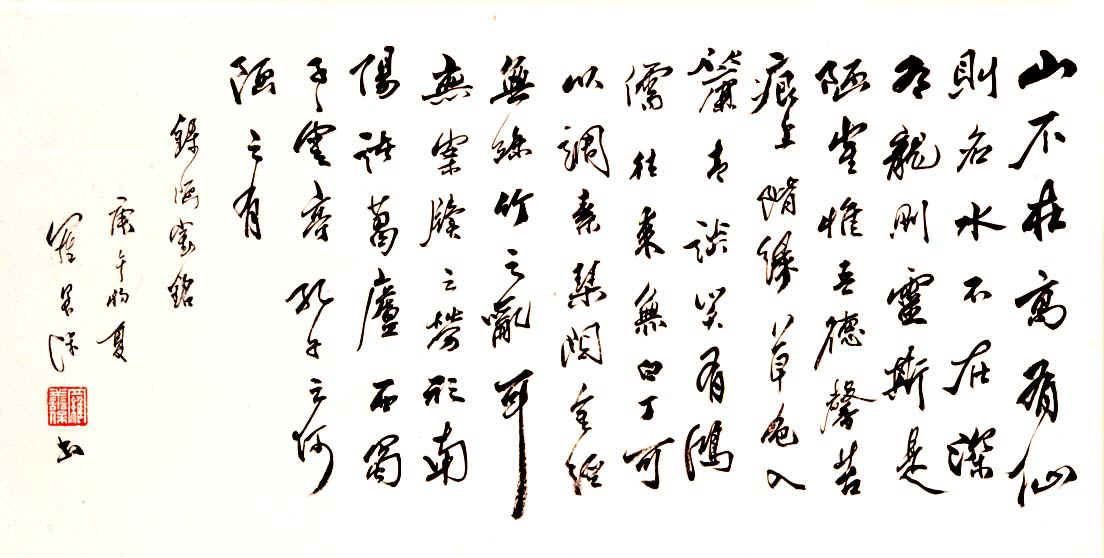 山不在高有仙
則名水不在深
有龍則靈斯是
陋室惟吾德馨苔
痕上階綠草色入
簾青談笑有鴻
儒往來無白丁可
以調素琴閱金經
無絲竹之亂耳
無案牘之勞形南
陽諸葛廬西蜀
子雲亭孔子云何
陋之有
錄陋室銘
庚午夏
羅書